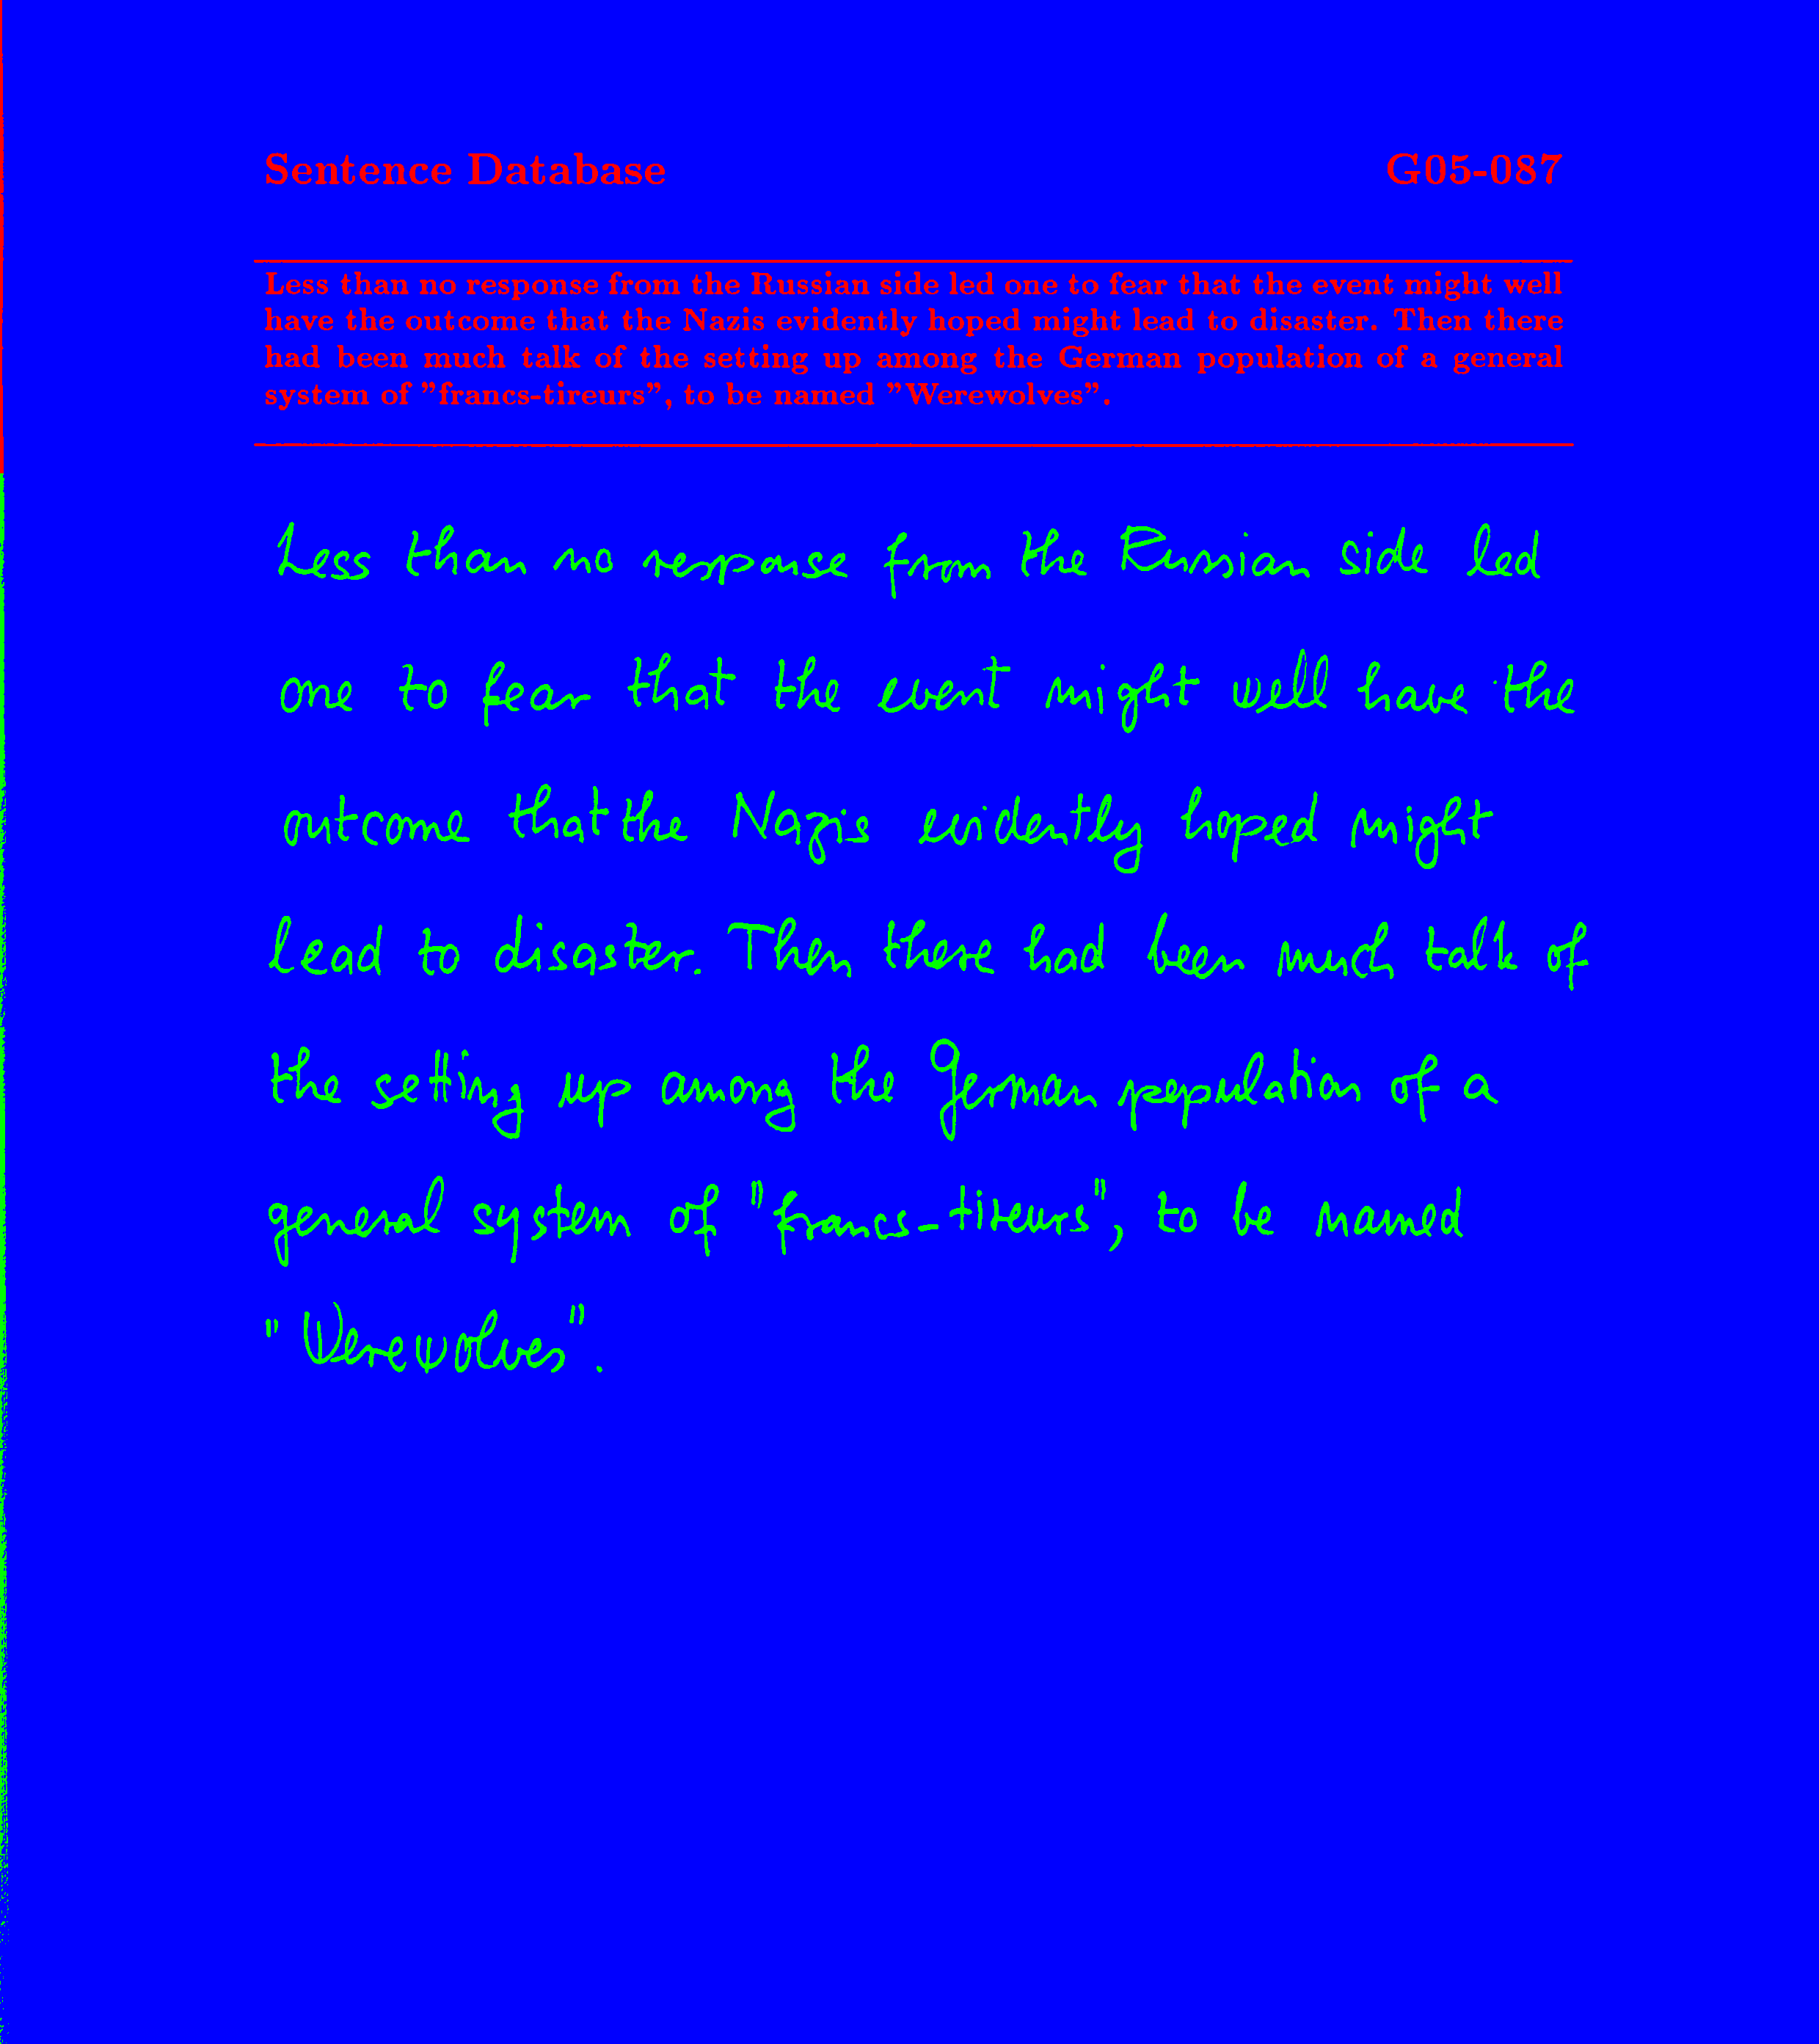 Sentence Database G05-087
Less than no response from the Russian side led one to fear that the event might well
have the outcome that the Nazis evidently hoped might lead to disaster. Then there
had been much talk of the setting up among the German population of a general
system of "francs-tireurs", to be named "Werewolves".
Less than no response from the Russian side led
one to fear that the event might well have the
outcome that the Nazis evidently hoped might
lead to disaster. Then there had been much talk of
the setting up among the German population of a
general system of "francs-tireurs", to be named
"Werewolves".